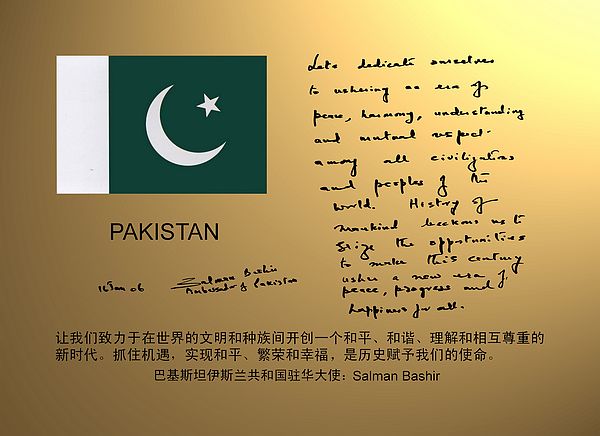 PAKISTAN
16 Jan 06
Salman Bashir
Ambassador of Pakistan
Let's dedicate ourselves
to ushering an era of
peace, harmony, understanding
and mutual respect.
among all civilizations
and peoples of the
world. History of
mankind beckons us to
seize the opportunities
to make this century
usher a new era of
peace, progress and
happiness for all.
让我们致力于在世界的文明和种族间开创一个和平、和谐、理解和相互尊重的
新时代。抓住机遇，实现和平、繁荣和幸福，是历史赋予我们的使命。
巴基斯坦伊斯兰共和国驻华大使：Salman Bashir